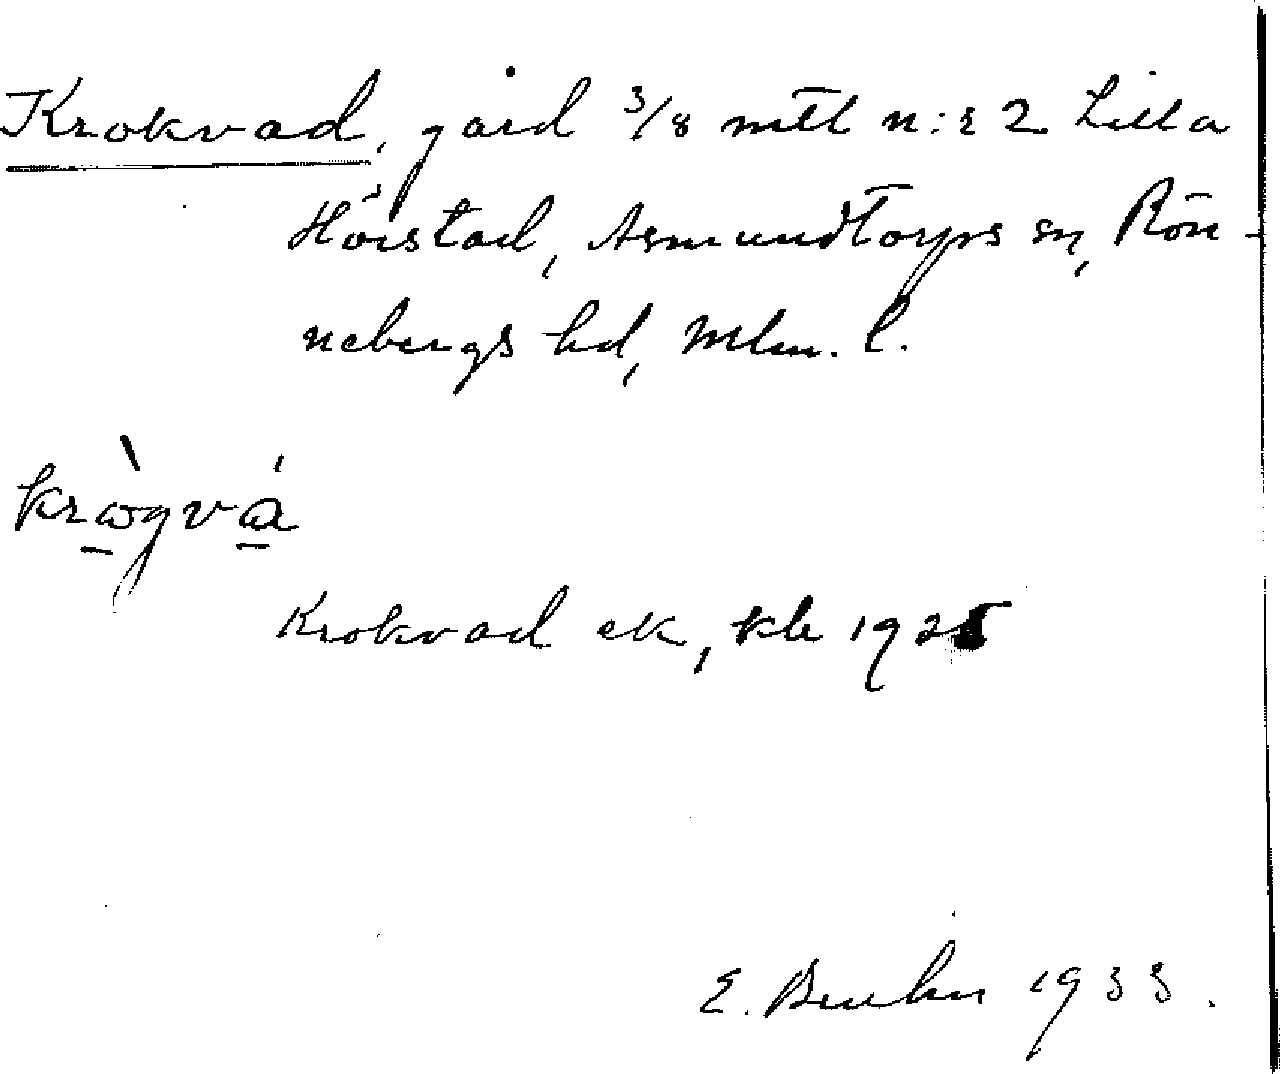 Krokvad, gård 3/8 mtl n:r 2 Lilla
Hörstad, Asmundtorps sn, Rön-
nebergs hd, Mlm. l.
krògvá
Krokvad ek, kb 1925
E. Bruhn 1933.